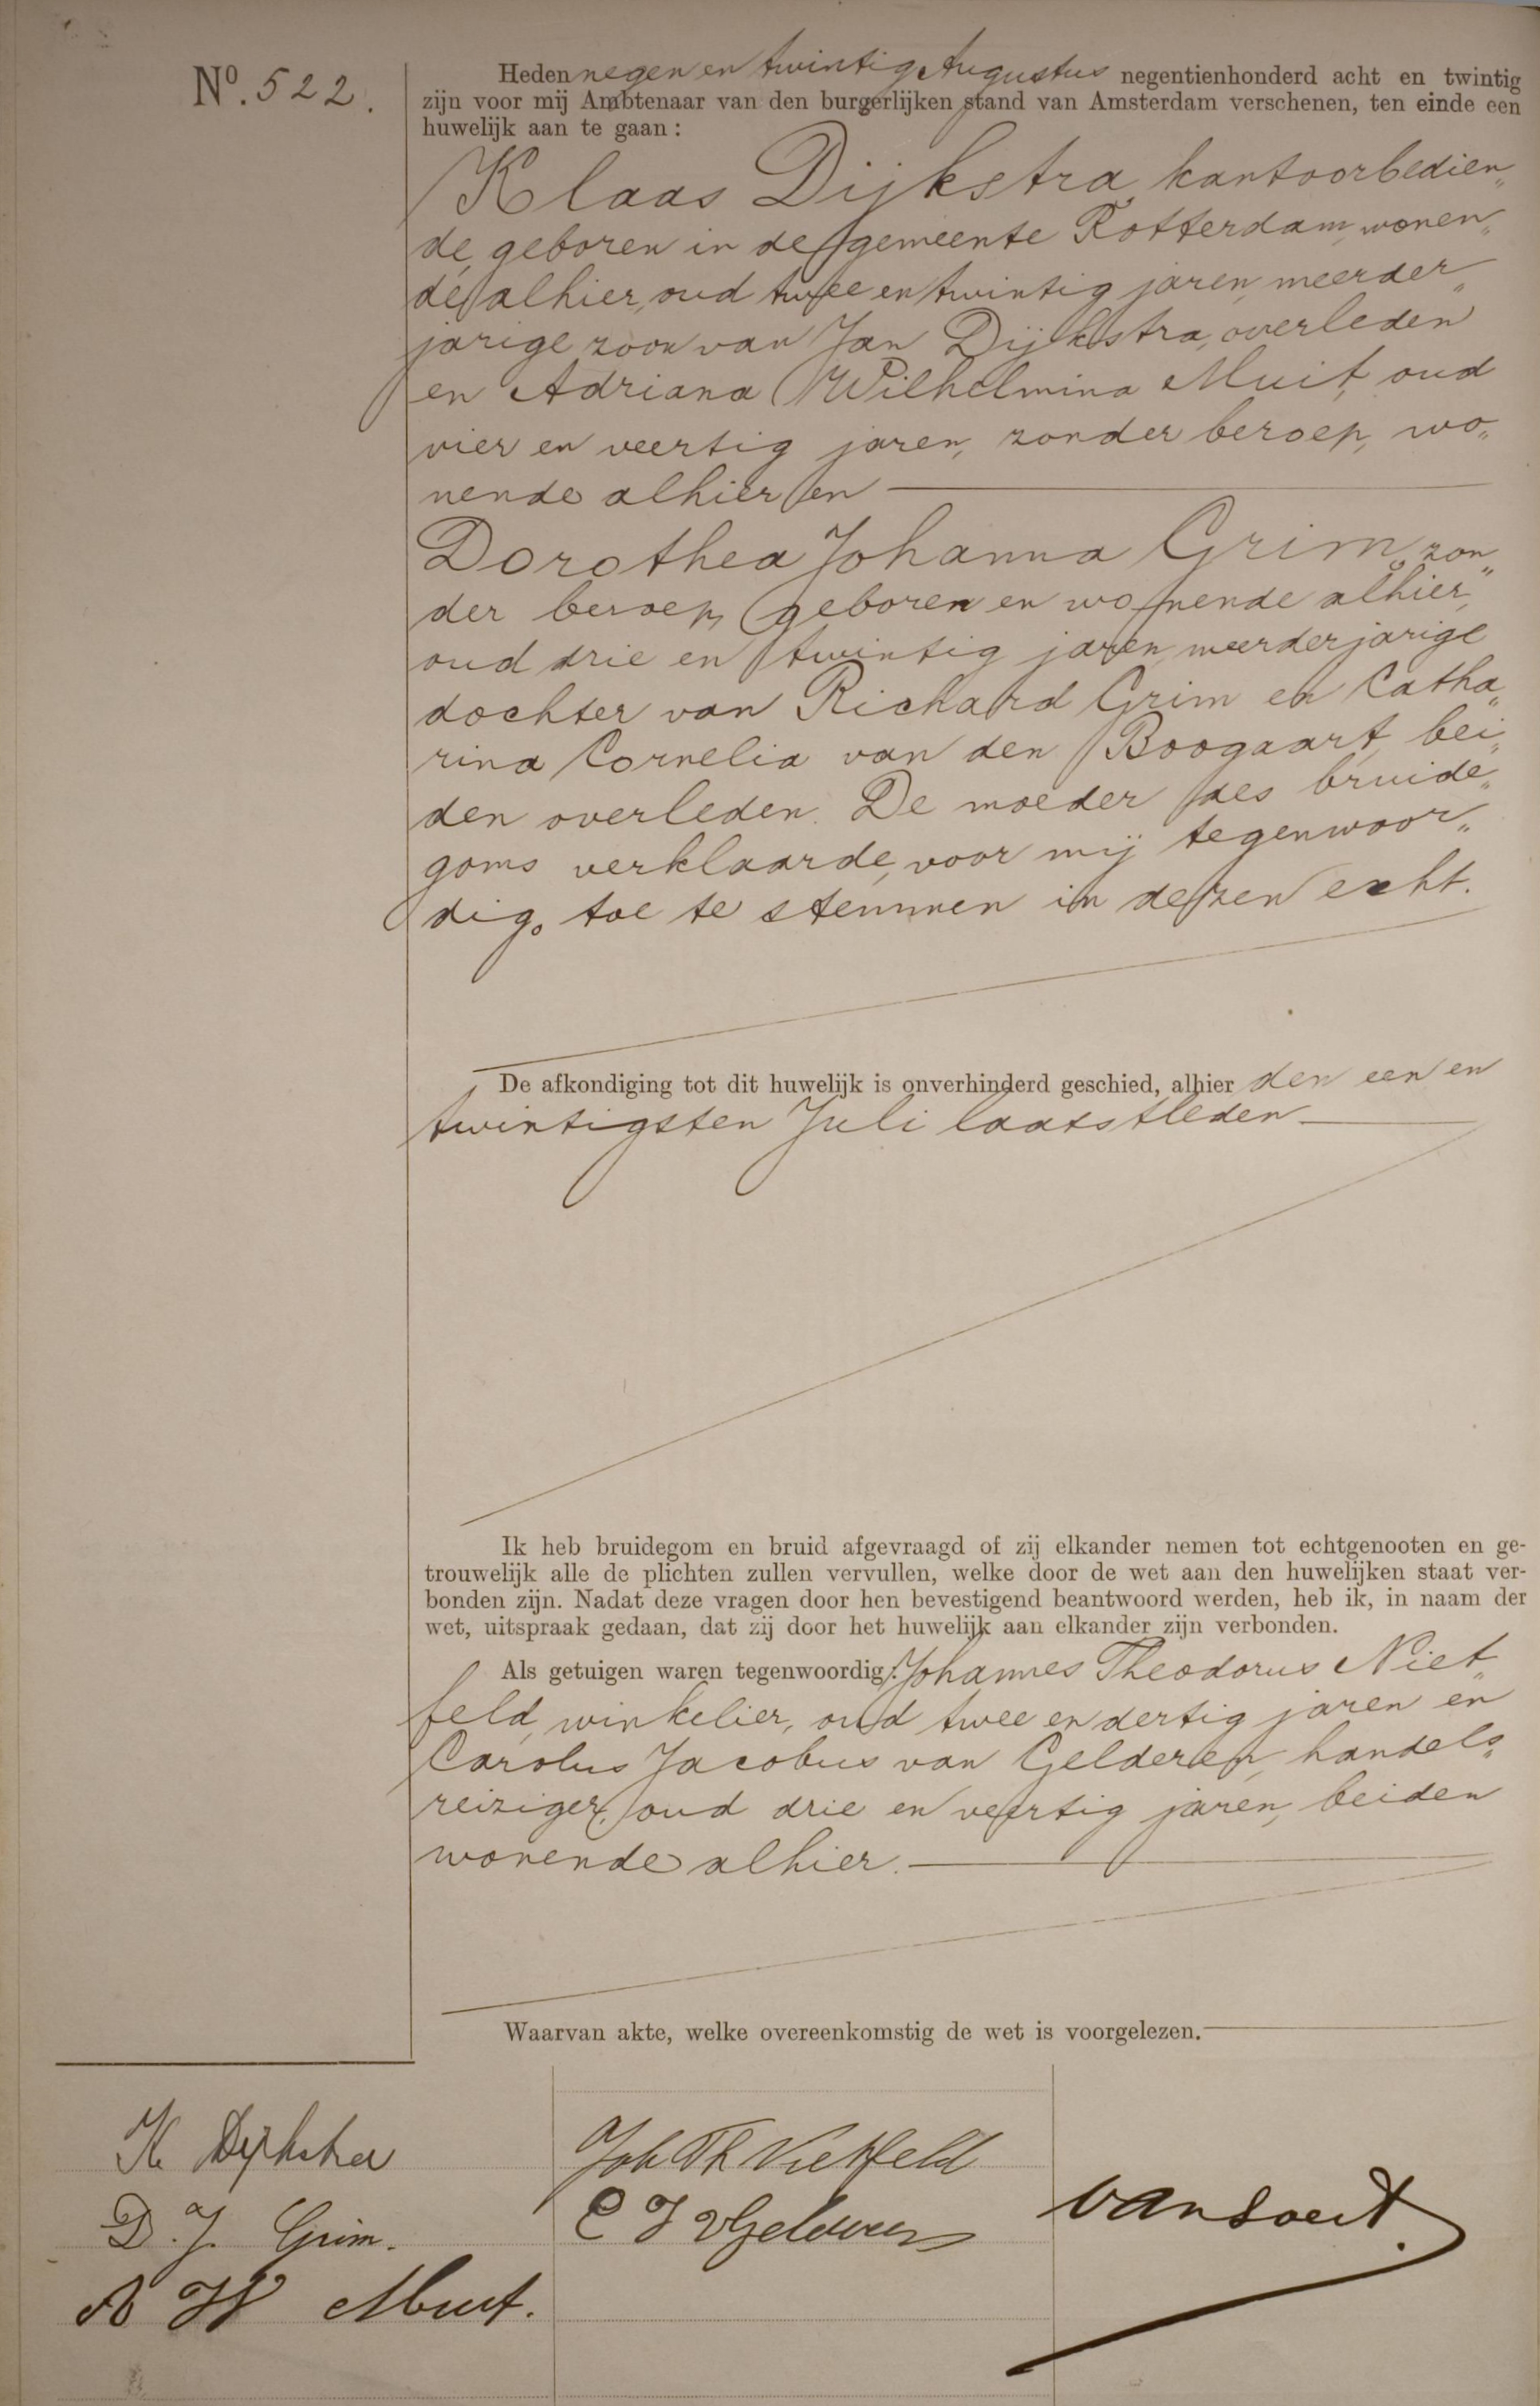 Nº. 522.
Heden negen en twintig Augustus negentienhonderd acht en twintig
zijn voor mij Ambtenaar van den burgerlijken stand van Amsterdam verschenen, ten einde een
huwelijk aan te gaan:
Klaas Dijkstra, kantoorbedien„
de, geboren in de gemeente Rotterdam, wonen„
de alhier, oud twee en twintig jaren, meerder„
jarige zoon van Jan Dijkstra, overleden
en Adriana Wilhelmina Muit, oud
vier en veertig jaren, zonder beroep, wo„
nende alhier en
Dorothea Johanna Grim, zon„
der beroep, geboren en wonende alhier,
oud drie en twintig jaren, meerderjarige
dochter van Richard Grim en Catha„
rina Cornelia van den Boogaart, bei„
den overleden. De moeder des bruide„
goms verklaarde, voor mij tegenwoor„
dig, toe te stemmen in dezen echt.
De afkondiging tot dit huwelijk is onverhinderd geschied, alhier den een en
twintigsten Juli laatstleden
Ik heb bruidegom en bruid afgevraagd of zij elkander nemen tot echtgenooten en ge-
trouwelijk alle de plichten zullen vervullen, welke door de wet aan den huwelijken staat ver-
bonden zijn. Nadat deze vragen door hen bevestigend beantwoord werden, heb ik, in naam der
wet, uitspraak gedaan, dat zij door het huwelijk aan elkander zijn verbonden.
Als getuigen waren tegenwoordig: Johannes Theodorus Niet„
feld, winkelier, oud twee en dertig jaren en
Carolus Jacobus van Gelderen, handels„
reiziger, oud drie en veertig jaren, beiden
wonende alhier.
Waarvan akte, welke overeenkomstig de wet is voorgelezen.
K Dijkstra
D. J. Grim.
A W Muit.
Joh Th Nietfeld
C J vGelderen
van Soest.